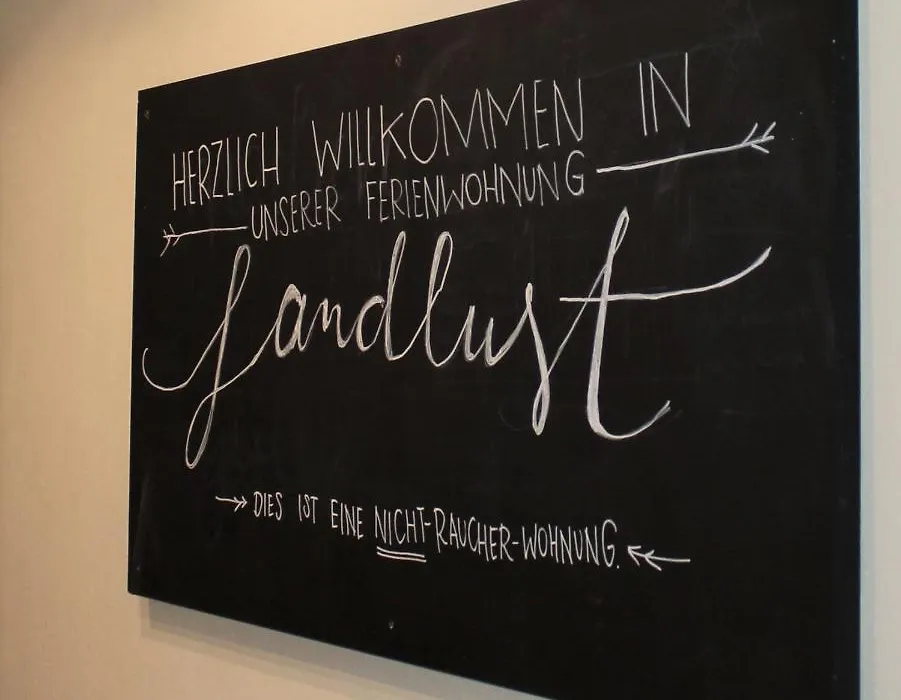 HERZLICH WILLKOMMEN IN
UNSERER FERIENWOHNUNG
Landlust
DIES IST EINE NICHT-RAUCHER-WOHNUNG.